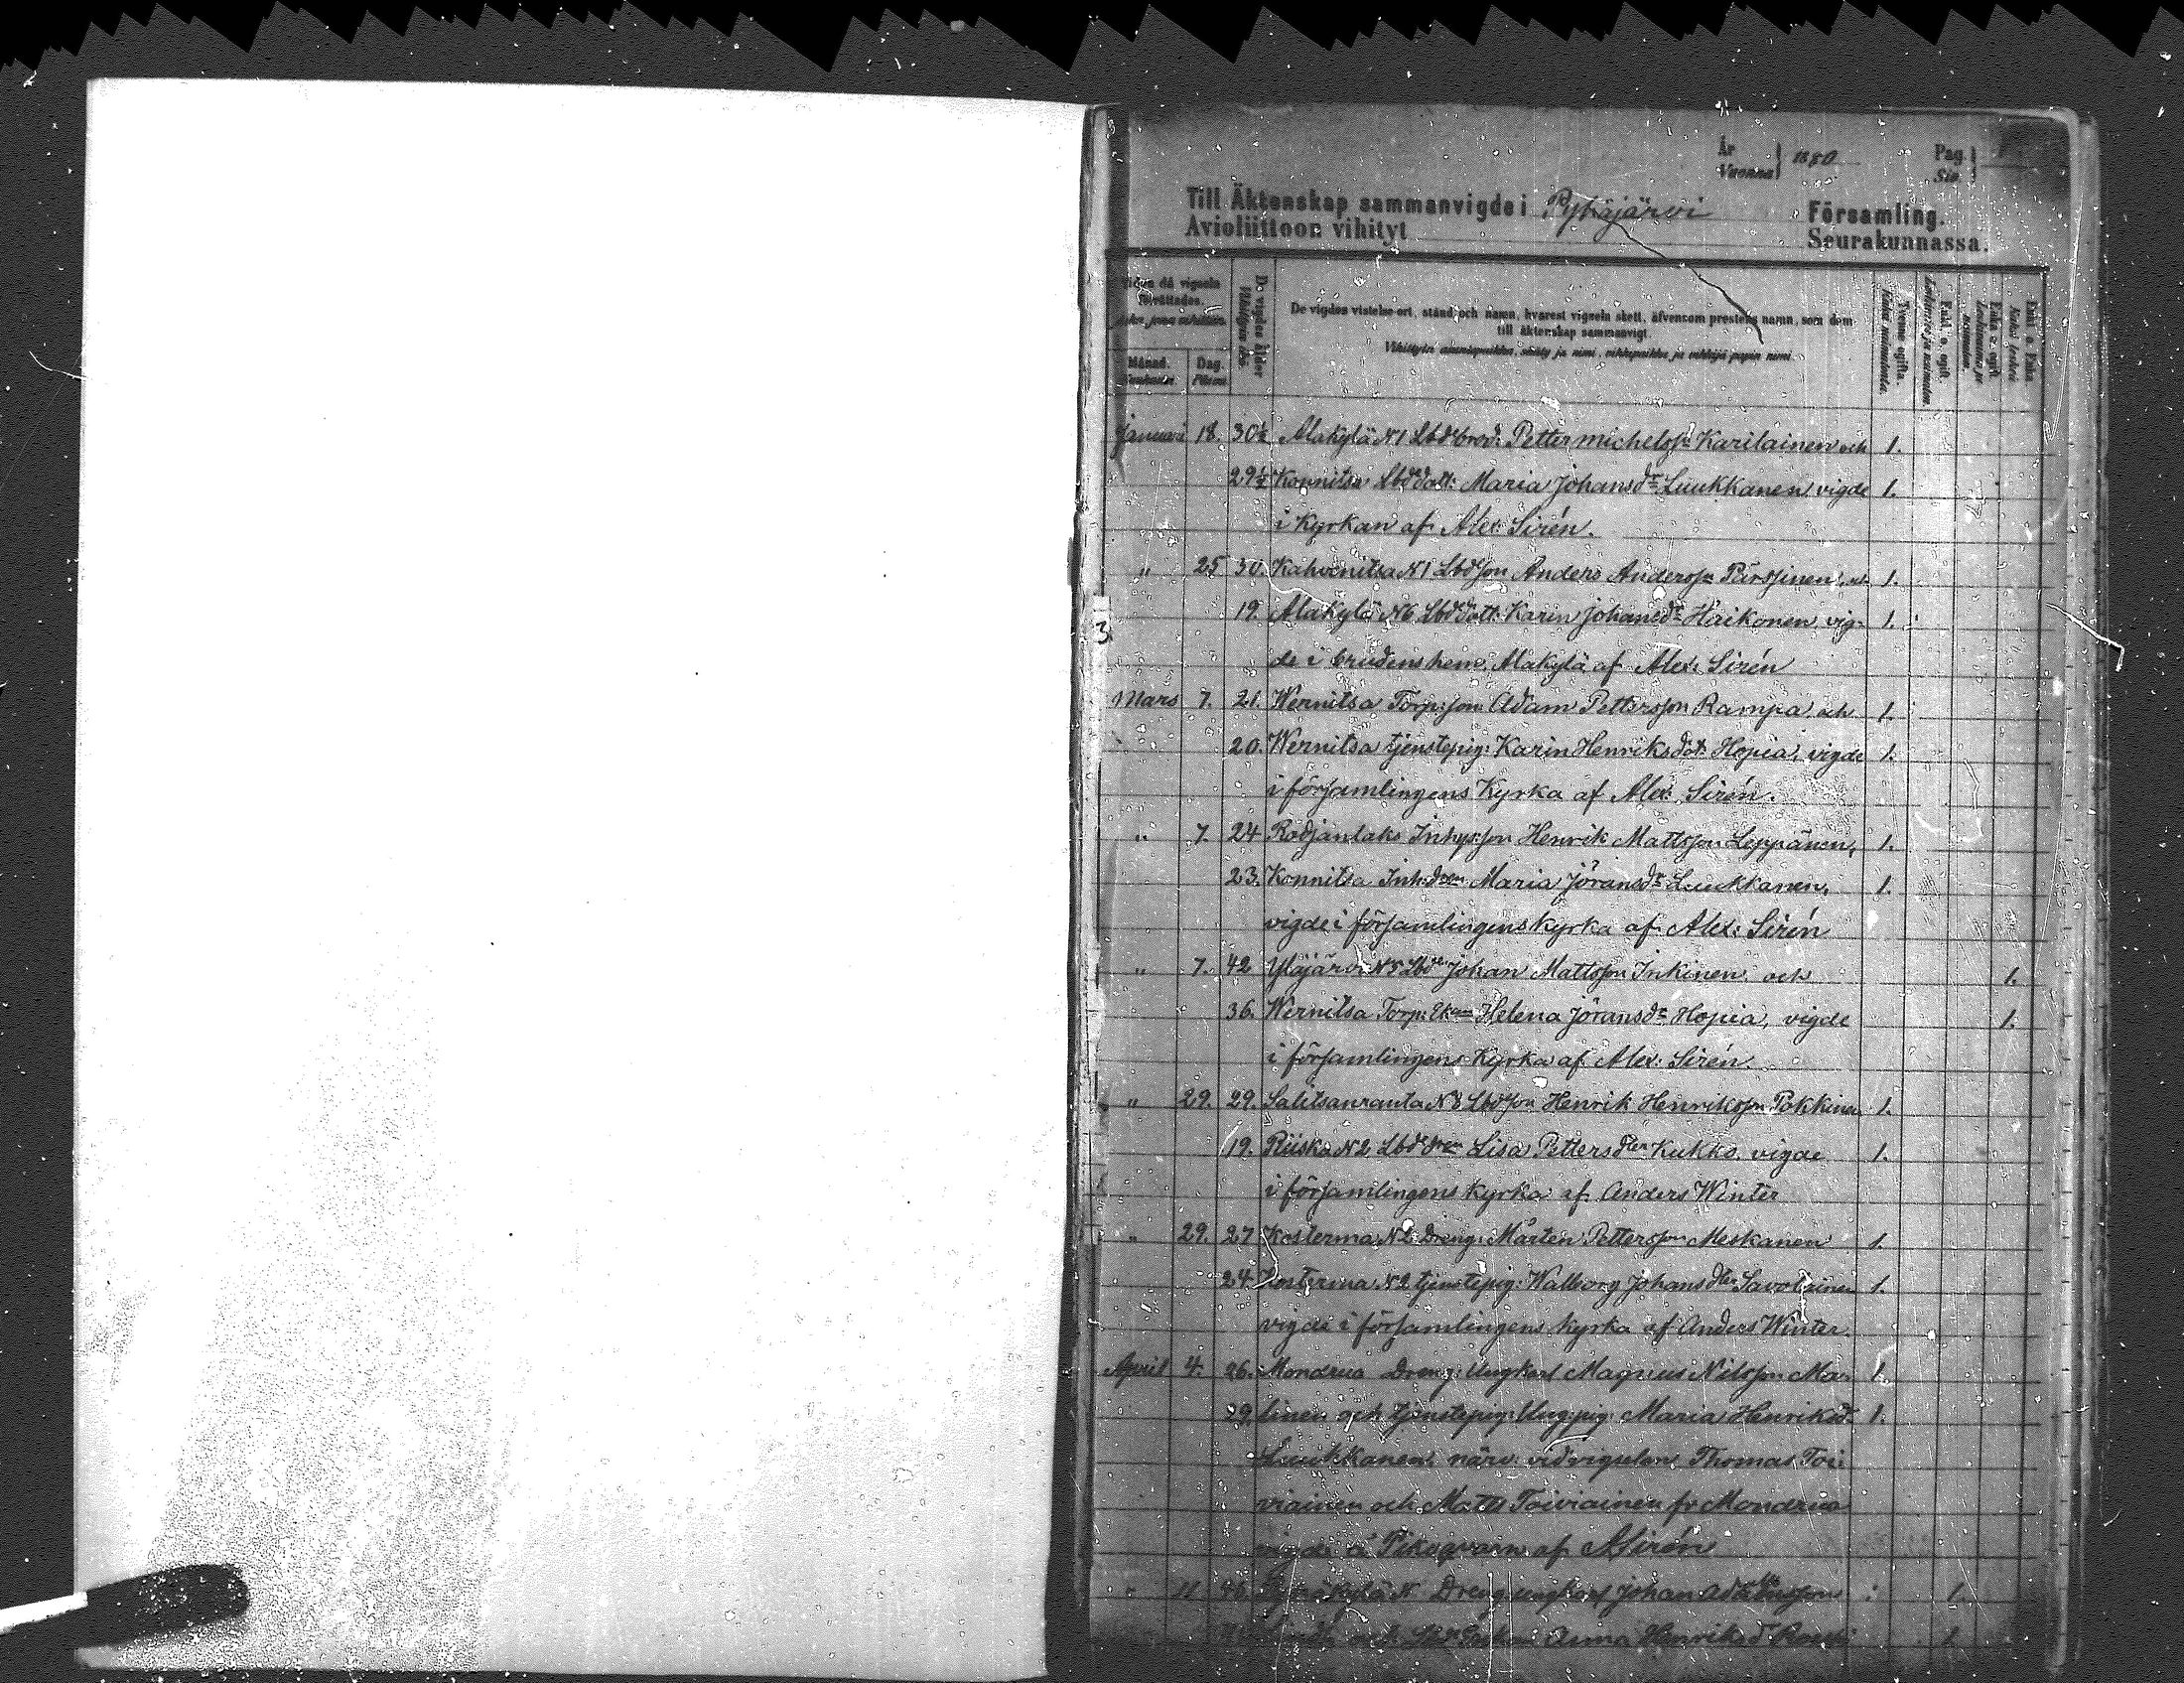 År
Vuonna 1880
Pag.
Siv.
Till Äktenskap sammanvigde i Pyhäjärvi Församling.
Avioliittoon vihityt Seurakunnassa.
Tiden då vigseln förrättades.
De vigdes ålder
De vigdes vistelse-ort, stånd och namn, hvarest vigseln skett, äfvensom prestens namn, som dem
till äktenskap sammanvigt.
Månad. Dag.
Tvenne ogifta.
Enkl. o. ogift.
Enka o. ogift.
Enkl o. Enka
Januari 18. 30½ Alakylä N1 Lbdebrod: Petter Michelss: Karilainen och 1.
29½ Konnitsa Lbdedott: Maria Johansdr Luukkanen vigde 1.
i Kyrkan af Alex: Sirén.
" 25 30. Kahvenitsa N1 Lbdeson Anders Anderss: Pärssinen och 1.
19. Alakylä N6 Lbdedott: Karin Johansdr Häikonen vig- 1.
de i brudens hem, Alakylä af Alex: Sirén
Mars 7. 21. Wernitsa Torp:son Adam Pettersson Rampa och 1.
20. Wernitsa tjenstepig: Karin Henriksdot: Hopia, vigde 1.
i församlingens Kyrka af Alex: Sirén.
" 7. 24 Rodjanlaks Inhys:son Henrik Mattsson Leppänen, 1.
23. Konnitsa Inh:dren Maria Jöransdr Luukkanen, 1.
vigde i församlingens kyrka af Alex: Sirén
" 7. 42 Yläjärvi N5 Lbden Johan Mattsson Inkinen och 1.
36. Wernitsa Torp: Ekan Helena Jöransdr Hopia, vigde 1.
i församlingens Kyrka af Alex: Sirén.
" 29. 29. Salitsanranta N3 Lbdeson Henrik Henrikson Pokkinen 1.
19. Riiska N2 Lbdedren Lisa Pettersdter Kukko vigde 1.
i församlingens Kyrka af Anders Winter
" 29. 27 Kosterma N2 Dreng: Mårten Pettersson Meskanen 1.
24 Kosterma N2 tjenstepig: Walborg Johansdter Savolainen 1.
vigde i församlingens kyrka af Anders Winter.
April 4. 26. Mondrua Dreng: Ungkarl Magnus Nilsson Ma- 1.
29. linen och tjenstepig: Ungpig: Maria Henriksdr 1.
Luukkanen, närv: vid vigseln Thomas Toi-
viainen och Matts Toiviainen fr Mondrua
vigde i Pikaqvarn af A Sirén
" 11 N Dreng ungkarl Johan 1.
och Anna Henriksd 1.
3.